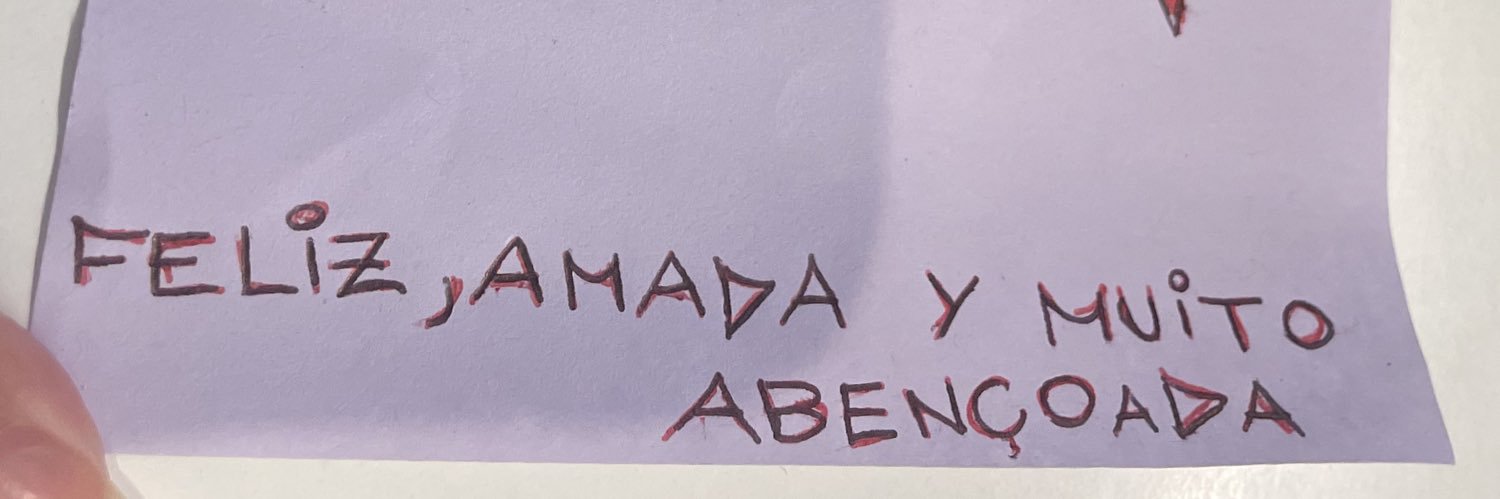 FELiZ, AMADA Y MUiTO
ABENÇOADA